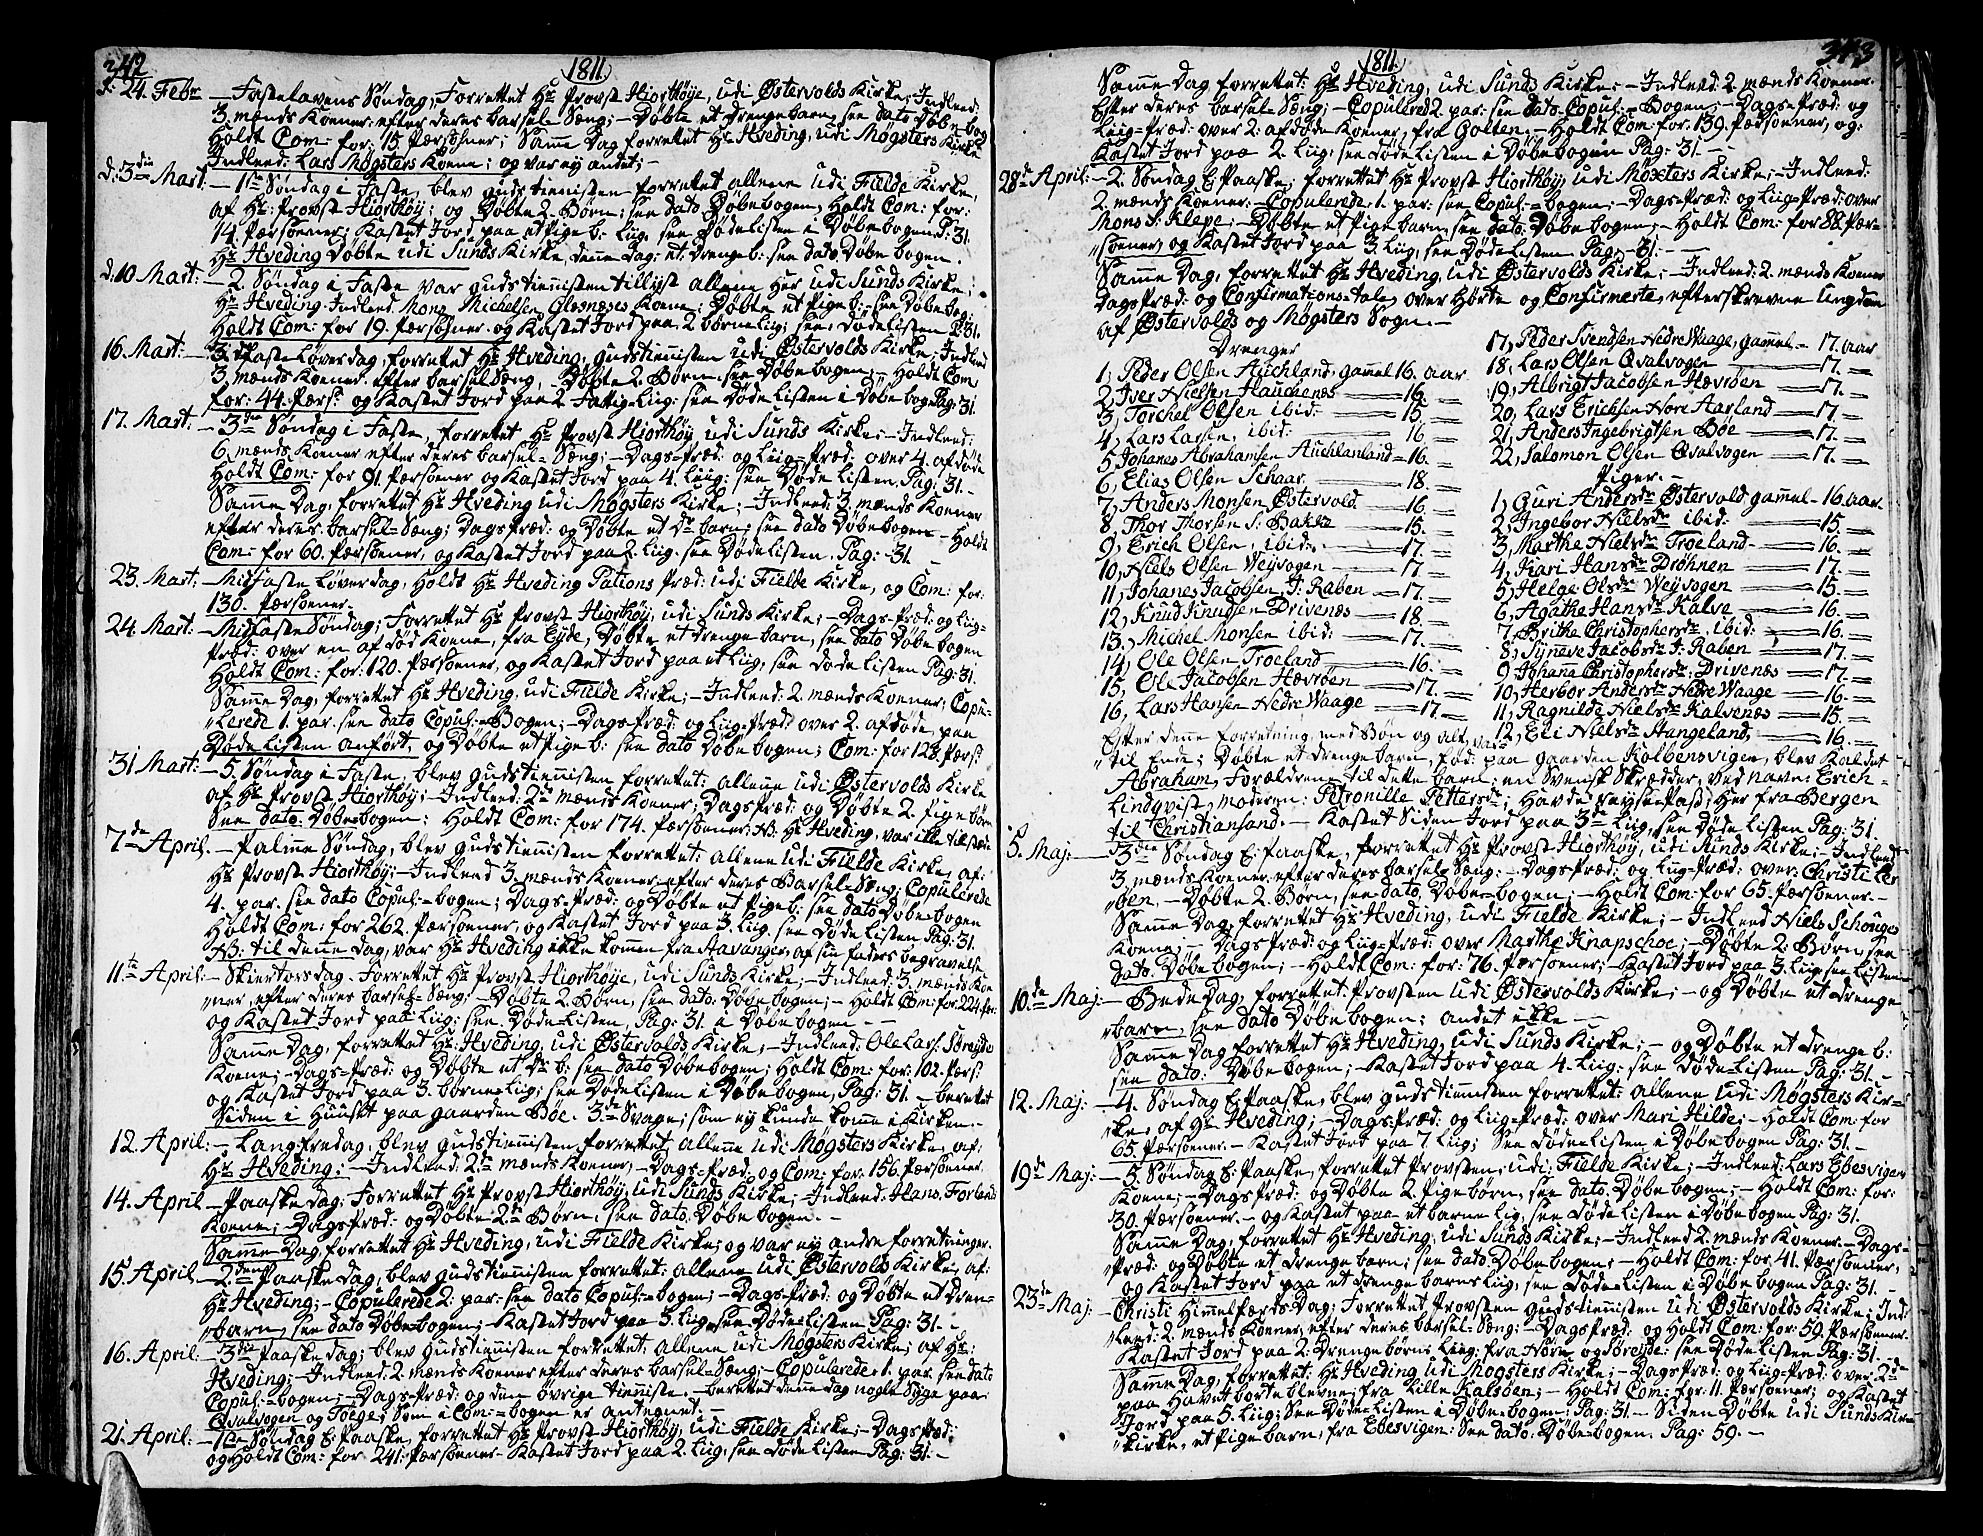 342
1811
d: 24. Febr – Fastelavens Søndag, Forrettet Hr Provst Hiorthøye, udi Østervolds Kirke, Indleed:
3. mænds Koener efter deres barsel-Sæng; – Døbte et drengebarn, see dato Døbebog
Holdt Com: for: 15. Pærsohner; Samme Dag forrettet Hr Hveding, udi Møgsters Kirke
Indleed: Lars Møgsters Koene; og var ey andet; –
d: 3die Mart: – 1ste Søndag i Faste, blev Gudstienisten forrettet allene udi Fielde Kirke,
af Hr: Provst Hiorthøy; og Døbte 2. Børn; see dato Døbebogen, Holdt Com: for:
14. Pærsoener; Kastet Jord paa et Pige b: Liig, see Døde Listen i Døbebogen P: 31.
Hr Hveding Døbte udi Sunds Kirke, denne Dag: et Drenge b: see dato Døbe bogen.
d. 10 Mart: – 2. Søndag i Faste var Gudstienisten tillyst allene her udi Sunds Kirke;
Hr Hveding Indleed. Mons Michelsen Glesnæses Koene; Døbte et Pige b: see Døbebog:
Holdt Com: for 19. Pærsohner og Kastet Jord paa 2 børne Liig; see Døde Listen P: 31.
16. Mart: – 3. Faste Løverdag, forrettet Hr Hveding, Gudstienisten udi Østervolds Kirke; Indleed
3. mænds Koener efter barsel Sæng, – Døbte 2. Børn. see Døbebogen; – Holdt Com
for: 44. Pærs: og Kastet Jord paa 2 Fattig-Liig: see Døde Listen i Døbebog Pag: 31.
17. Mart. – 3die Søndag i Faste, forrettet Hr Provst Hiorthøy, udi Sunds Kirke; – Indleed:
6. mænds Koener efter deres barsel-Sæng; – Dags-Præd: og Liig-Præd: over 4. afdøde
Holdt Com: for 91 Pærsoener og Kastet Jord paa 4. Liig: see Døde Listen. Pag: 31. –
Samme Dag, forrettet Hr Hveding udi Møgsters Kirke; – Indleed: 3 mænds Koener
efter deres barsel-Sæng; Dags Præd: og Døbte et Dr barn; see dato Døbebogen – Holdt
Com: for 60. Pærsoener, og Kastet Jord paa 2. Liig: see Døde Listen. Pag: 31. –
23. Mart. – Midfaste Løverdag, Holdt Hr Hveding Pations Præd: udi Fielde Kirke, og Com: for:
130. Pærsoener.
24. Mart: – Midfaste Søndag; Forrettet Hr Provst Hiorthøy, udi Sunds Kirke; – Dags-Præd: og Liig-
Præd: over en af død Koene, fra Eyde, Døbte et drengebarn, see dato Døbebogen
Holdt Com: for: 120. Pærsoener, og Kastet Jord paa et Liig, see døde Listen Pag: 31.
Samme Dag, forrettet Hr Hveding, udi Fielde Kirke; – Indleed: 2. mænds Koener, Copu-
lerede 1. par. see dato Copul:-Bogen; – Dags-Præd: og Liig-Præd: over 2. afdøde, paa
Døde Listen anført, og Døbte et Pige b: see dato Døbebogen; Com: for 128. Pærs:
31 Mart: – 5. Søndag i Faste, blev Gudstienisten forrettet: allene udi Østervolds Kirke
af Hr Provst Hiorthøy; – Indleed: 2de mænds Koener; Dags Præd: og Døbte 2. Pigebørn
See dato Døbebogen; Holdt Com: for 174. Pærsoener. NB. Hr Hveding, var ille til stæde
7de April. – Palme Søndag, blev Gudstienisten forrettet: allene udi Fielde Kirke, af:
Hr Provst Hiorthøy; – Indleed 3. mænds Koener efter deres Barsel Sæng; Copulerede
4. par. see dato Copul:-bogen; Dags-Præd: og Døbte et Pige b: see dato Døbebogen
Holdt Com: for 262. Pærsoener, og Kastet Jord paa 3. Liig. see Døde Listen Pag: 31.
NB: til denne Dag, var Hr Hveding ikke kommen fra Aavanger, af sin Faders begravelse
11te April: – Skiertorsdag. Forrettet Hr Provst Hiorthøye, udi Sunds Kirke; – Indleed: 3. mænds Koe
ner, efter deres barsel-Sæng; – Døbte 2. Børn, see dato. Døbebogen; – Holdt Com: for 224. for:
og Kastet Jord paa Liig: see DødeListen, Pag: 31. i Døbebogen –
Samme Dag, forrettet Hr: Hveding, udi Østervolds Kirke, – Indleed: Ole Lars: Søreyde
Koene; – Dags-Præd: og Døbte et Dr b: see dato Døbebogen; Holdt Com: for: 102. Pærs:
og Kastet Jord paa 3. børne-Liig; see DødeListen i Døbebogen, Pag: 31. – berettet
Siden i Huuset paa gaarden Bøe. 3de Svage; som ey kunde komme i Kirken. –
12. April: – Langfredag, blev Gudstienisten forrettet allene udi Møgsters Kirke, af:
Hr Hveding; – Indleed: 2de mænds Koener, – Dags-Præd: og Com: for. 156. Pærsoener.
14. April – Paaske Dag; Forrettet Hr Provst Hiorthøy, udi Sunds Kirke, Indleed: Hans. Forlands
Koene; – Dags Præd: og Døbte 2de Børn. see dato. Døbebogen. –
Samme Dag, forrettet Hr Hveding, udi Fielde Kirke; og var ey andre forretninger.
15. April – 2den Paaske Dag, blev Gudstienisten forrettet: allene udi Østervolds Kirke, af:
Hr Hveding; – Copulerede 2. par: see dato Copul:-bogen; – Dags-Præd: og Døbte et Dren-
barn, see dato Døbebogen; – Kastet Jord paa 3. Liig, see Døde-Listen Pag: 31. –
16. April: – 3die Paaske dag; blev Gudstienisten forrettet: allene udi Møgsters Kirke, af Hr:
Hveding; – Indleed: 2 mænds Koener efter deres barsel-Sæng; – Copulerede 1. par. see dato
Copul:-bogen; – Dags-Præd: og den øvrige tieniste. – berettet denne dag nogle Syge paa
Qvalvogen og Toege; Som i Com:-bogen er antegnet. –
21. April: – 1ste Søndag E: Paaske, forrettet Hr Provst Hiorthøy, udi Fielde Kirke; – Dags Præd:
og Holdt Com: for 241. Pærsoener Kastet Jord paa 2. Liig, see døde Listen Pag: 31. –
343
1811.
Samme Dag forrettet: Hr Hveding, udi Sunds Kirke; – Indleed: 2 mænds Koener
Efter deres barsel-Sæng; – Copulered 2 par: see dato Copul:-Bogen, – Dags-Præd: og
Liig-Præd: over 2: afdøde Koener, fra Golten, – Holdt Com: for: 139. Pærsoener, og:
Kastet Jord paa 2. Liig; see Døde Listen i Døbebogen Pag: 31. –
28de April: – 2. Søndag E: Paaske; forrettet Hr Provst Hiorthøy, udi Møxters Kirke; – Indleed:
2. mænds Koener. – Copulerede 1. par: see Copul:-bogen; – Dags-Præd: og Liig-Præd: over
Mons S: Klepe; – Døbte et Pigebarn, see dato. Døbebogen; – Holdt Com: for 88. Pær-
soener, og Kastet Jord paa 3 Liig; see DødeListen Pag: 31. –
Samme Dag, forrettet Hr Hveding, udi Østervolds Kirke; – Indleed: 2. mænds Koener
Dags Præd: og Confirmations-tale, over Hørte og Confirmerte, efterskrevne ungdom
af Østervolds og Møgsters Sogn. –
Drenger
1, Peder Olsen Auchland, gammel 16. aar
2, Iver Nielsen Hauchenæs – 16. –
3, Torchel Olsen ibid: – 15. –
4, Lars Larsen, ibid: – 16. –
5, Johanes Abrahamsen Auchlanland – 16. –
6, Elias Olsen Schaar – 18. –
7, Anders Monsen Østervold – 16. –
8, Thor Thorsen S: Bakke – 15. –
9, Erich Olsen, ibid: – 17. –
10, Niels Olsen Weyvogen – 17. –
11, Johanes Jacobsen, J: Raben – 17. –
12, Knud Knudsen Drivenæs – 18. –
13, Michel Monsen ibid: – 17. –
14, Ole Olsen, Troeland – 16. –
15, Ole Jacobsen Hævrøen – 17. –
16, Lars Hansen Nedre Waage – 17. –
17, Peder Svendsen Nedre Waage, gammel – 17. aar
18, Lars Olsen Qvalvogen – 17. –
19, Albrigt Jacobsen Hævrøen – 17. –
20, Lars Erichsen Nore Aarland – 17. –
21, Anders Ingebrigtsen Bøe – 17. –
22, Salomon Olsen Qvalvogen – 17. –
Piger.
1, Guri Andersdr Østervold gammel – 16. aar.
2, Ingebor Nielsdr ibid: – 15. –
3, Marthe Nielsdr Troeland – 16. –
4, Kari Hansdr Drøhnen – 17. –
5, Helge Olsdr Weyvogen – 15. –
6, Agathe Hansdr Kalve – 16. –
7, Brithe Christophersdr, ibid: – 16. –
8, Synneve Jacobsdr J: Raben – 17. –
9, Johanna Christophersdr: Drivenæs – 17. –
10, Herbor Andersdr Nedre Waage – 16. –
11, Ragnilde Nielsdr Kalvenæs – 15. –
12, Eli Nielsdr Hangeland, – 16. –
Efter denne forretning, med Bøn og alt, var
til Ende; Døbte et drengebarn, fød: paa gaarden Kolbensvigen, blev Kaldet
Abraham, Forældrene til dette barn; en Svensk Skrædder, ved navn: Erich
Lindqvist, moderen: Petronille Pettersdr; Havde reyse-Pass; Her fra Bergen
til Christiansand. – Kastet Siden Jord paa 3de Liig, see Døde Listen Pag: 31.
5. Maj: – 3die Søndag E: Paaske, forrettet Hr Provst Hiorthøy, udi Sunds Kirke; – Indleed
3. mænds Koener efter deres Barsel Sæng: – Dags-Præd: og Liig-Præd: over: Christi Ler
øen. – Døbte 2. Børn, see dato, Døbe-bogen; – Holdt Com: for 65. Pærsoener. –
Samme Dag, forrettet Hr Hveding, udi Fielde Kirke; – Indleed Niels Schouges
Koene; – Dags Præd: og Liig-Præd: over Marthe Knapschoe; – Døbte 2: Børn, see
dato. Døbebogen; – Holdt Com: for: 76. Pærsoener; – Kastet Jord paa 3. Liig, see Listen
10.de Maj: – Bede Dag, forrettet: Provsten udi Østervolds Kirke; – og Døbte et drenge
barn, see dato Døbebogen; andet ikke –
Samme Dag forrettet Hr Hveding, udi Sunds Kirke; – og Døbte et drenge b:
see dato. Døbebogen; – Kastet Jord paa 4. Liig: see Døde-Listen Pag: 31. –
12. Maj: – 4. Søndag E: Paaske, blev Gudstienisten forrettet: allene udi Møgsters Kir-
ke, af Hr Hveding; – Dags-Præd: og Liig-Præd: over Mari Hilde; – Holdt Com: for
65. Pærsoener. – Kastet Jord paa 7 Liig; See Døde-Listen i Døbebogen Pag: 31 –
19de Maj: – 5. Søndag E: Paaske, forrettet Provsten, udi: Fielde Kirke; – Indleed: Lars Ebesvigen
Koene; – Dags Præd: og Døbte 2. Pigebørn, see dato. Døbebogen; – Holdt Com: for:
30. Pærsoener. – og Kastet paa et barne Lig, see Døde Listen i Døbebogen Pag: 31.
Samme Dag, forrettet Hr Hveding, udi Sunds Kirke; – Indleed 2. mænds Koener – Dags-
Præd: og Døbte et drengebarn; see dato Døbebogen; – Holdt Com: for 41. Pærsoener,
og Kastet Jord paa et drenge barns Liig, see døde-Listen i Døbebogen Pag: 31. –
23de Maj: – Christi Himmelfærds Dag; Forrettet Provsten Gudstienisten udi Østervolds Kirke; Ind
leed: 2. mænds Koener, efter deres barsel-Sæng; – Dags Præd: og Holdt Com: for: 59. Pærsoener.
Kastet Jord paa 2: Drenge børns Liig; fra Hörn og Søreyde; see Døde Listen Pag: 31. –
Samme Dag, forrettet: Hr Hveding udi Møgsters Kirke; – Dags Præd: og Liig-Præd: over 2de
paa Havet borte blevne; fra Lille Kalsøen; – Holdt Com: for: 11. Pærsoener; og Kastet
Jord paa 5. Liig; see Døde-Listen i Døbe-bogen; Pag: 31. – Siden Døbte udi Sunds Kir-
kirke, et Pige barn, fra Ebesvigen: See dato. Døbe-bogen. Pag: 59. –